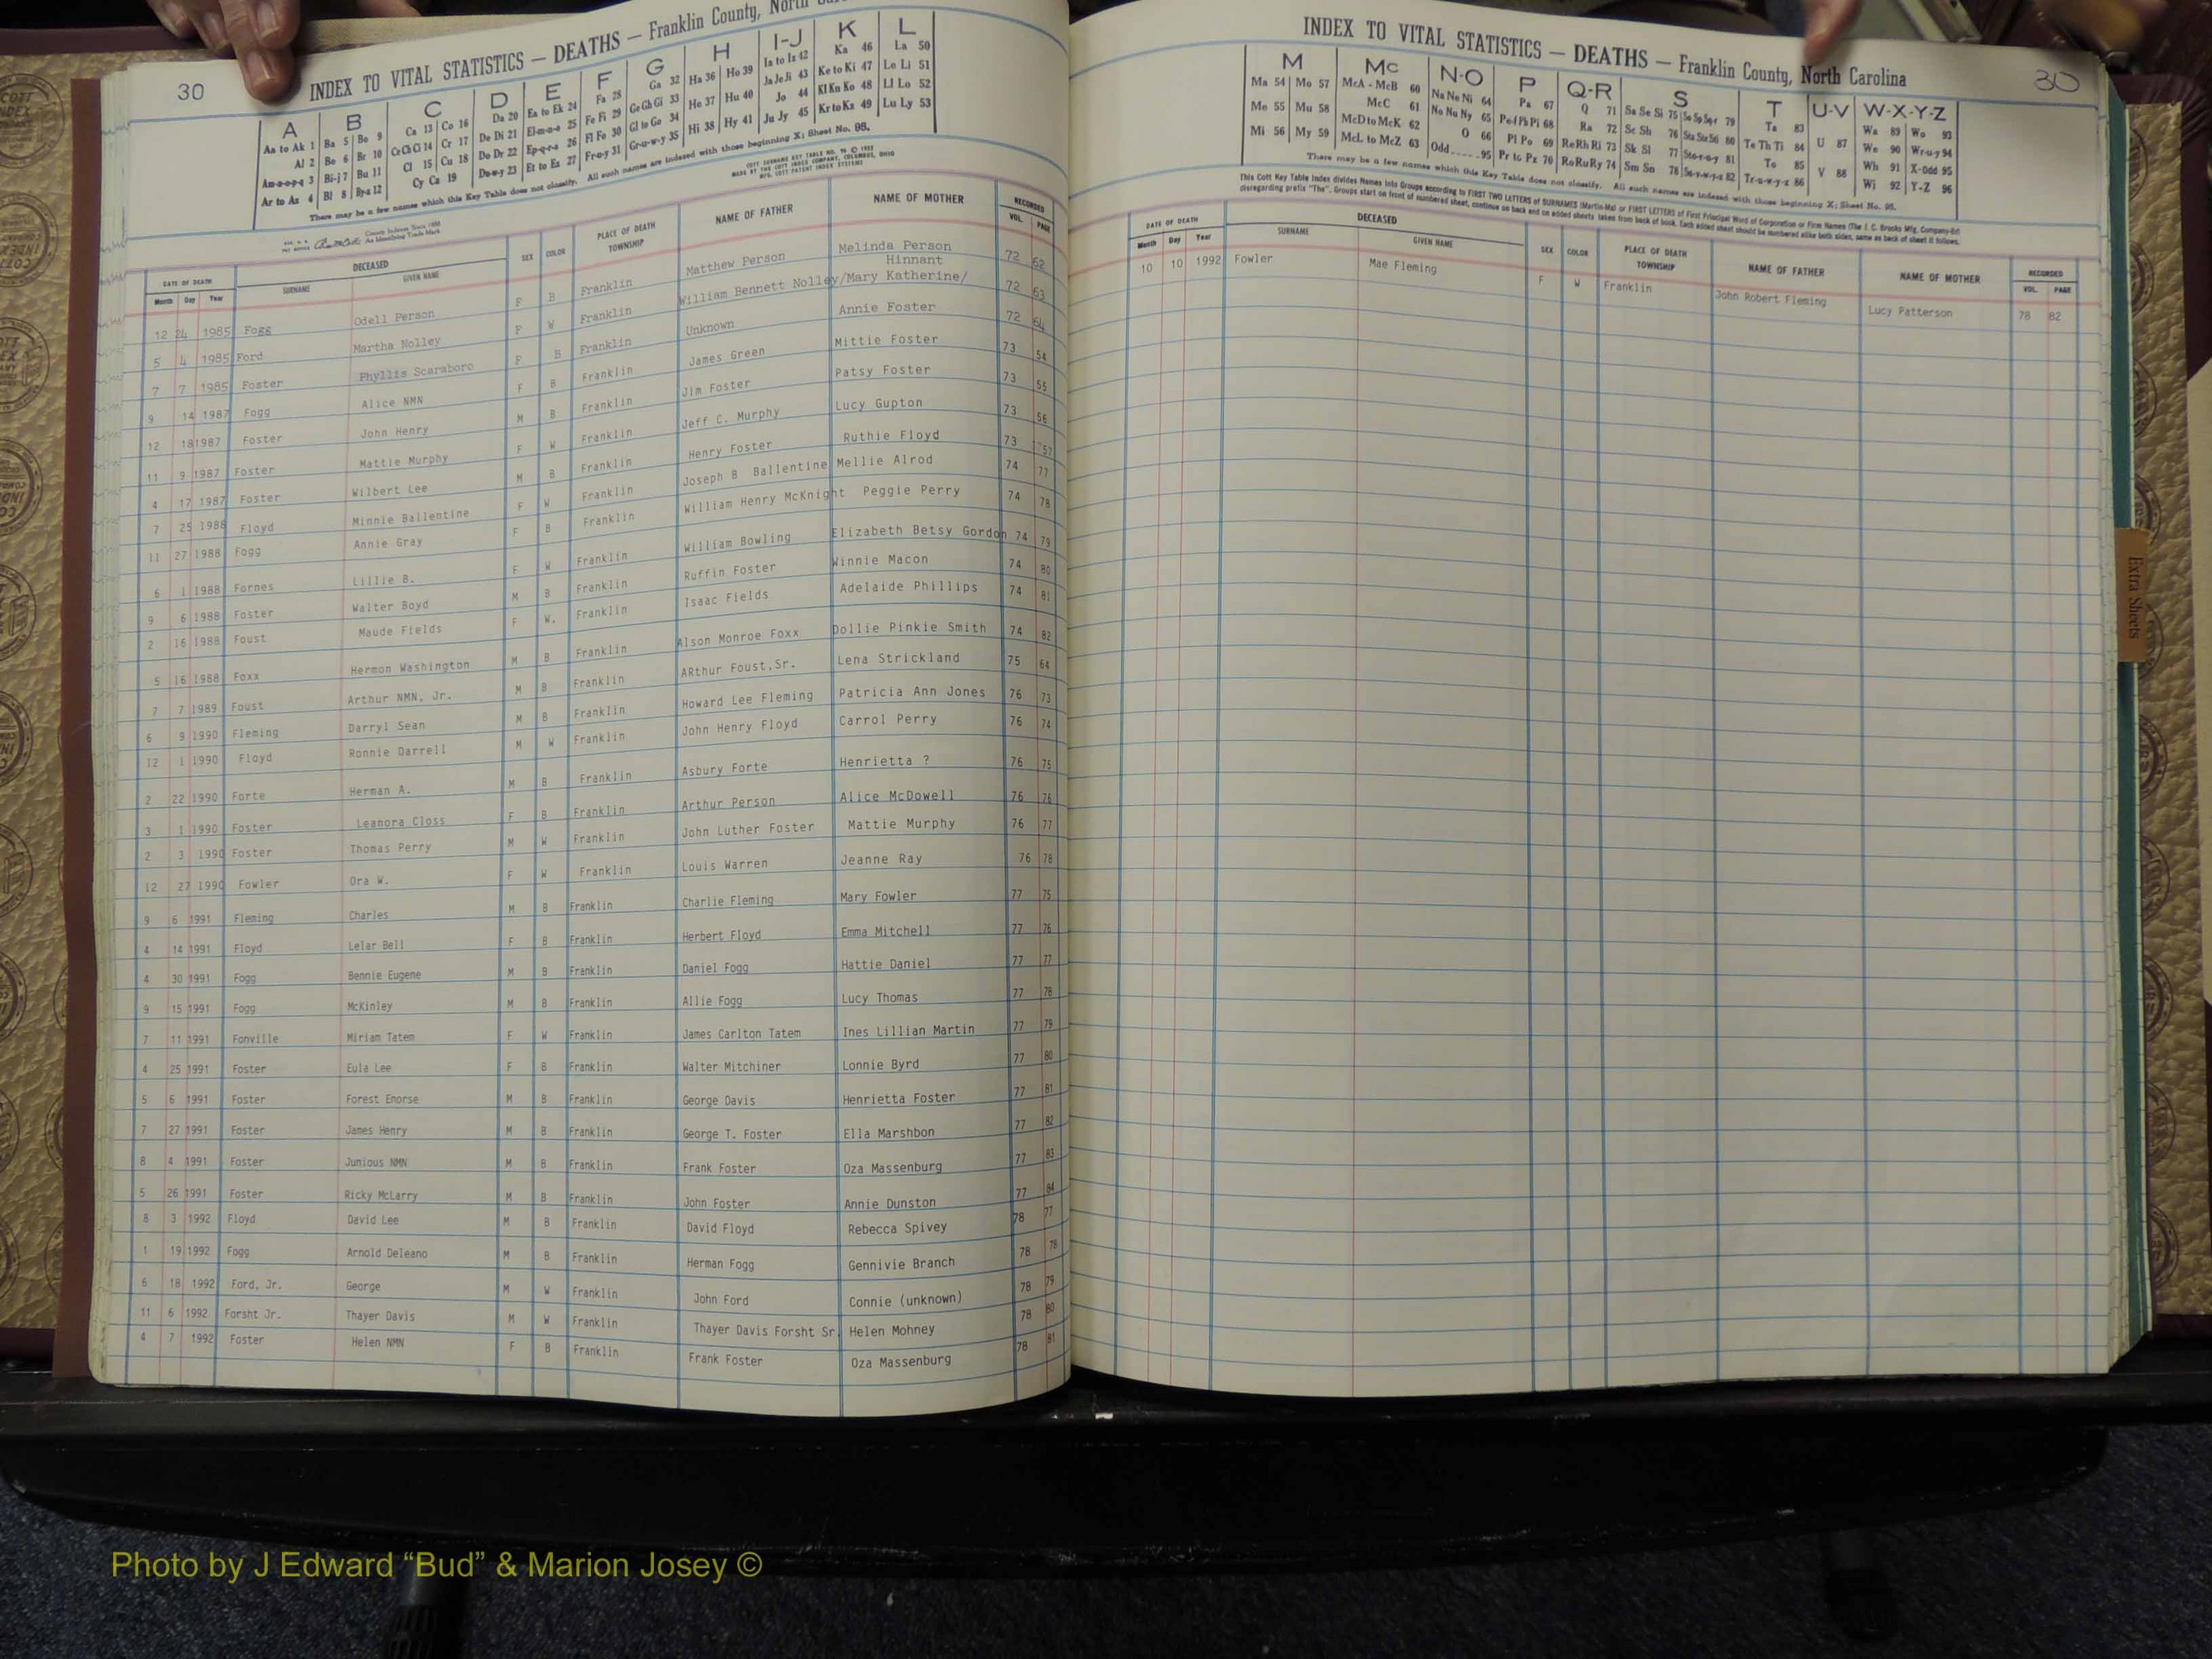 30
INDEX TO VITAL STATISTICS — DEATHS — Franklin County, North
A B C D E F G H I-J K L
Aa to Ak 1 Ba 5 Bo 9 Ca 13 Co 16 Da 20 Ea to Ek 24 Fa 28 Ga 32 Ha 36 Ho 39 Ia to Iz 42 Ka 46 La 50
Al 2 Be 6 Br 10 Ce Ch Ci 14 Cr 17 De Di 21 El-m-n-o 25 Fe Fi 29 Ge Gh Gi 33 He 37 Hu 40 Ja Je Ji 43 Ke to Ki 47 Le Li 51
Am-n-o-p-q 3 Bi-j 7 Bu 11 Cl 15 Cu 18 Do Dr 22 Ep-q-r-s 26 Fl Fo 30 Gl to Go 34 Hi 38 Hy 41 Jo 44 Kl Kn Ko 48 Ll Lo 52
Ar to Az 4 Bl 8 By-z 12 Cy Cz 19 Du-w-y 23 Et to Ez 27 Fr-u-y 31 Gr-u-w-y 35 Ju Jy 45 Kr to Kz 49 Lu Ly 53
There may be a few names which this Key Table does not classify. All such names are indexed with those beginning X; Sheet No. 95.
DATE OF DEATH DECEASED SEX COLOR PLACE OF DEATH TOWNSHIP NAME OF FATHER NAME OF MOTHER RECORDED
Month Day Year SURNAME GIVEN NAME VOL. PAGE
12 24 1985 Fogg Odell Person F B Franklin Matthew Person Melinda Person 72 62
5 4 1985 Ford Martha Nolley F W Franklin William Bennett Nolley/Mary Katherine/ Hinnant 72 63
7 7 1985 Foster Phyllis Scaraboro F B Franklin Unknown Annie Foster 72 64
9 14 1987 Fogg Alice NMN F B Franklin James Green Mittie Foster 73 54
12 18 1987 Foster John Henry M B Franklin Jim Foster Patsy Foster 73 55
11 9 1987 Foster Mattie Murphy F W Franklin Jeff C. Murphy Lucy Gupton 73 56
4 17 1987 Foster Wilbert Lee M B Franklin Henry Foster Ruthie Floyd 73 57
7 25 1988 Floyd Minnie Ballentine F W Franklin Joseph B Ballentine Mellie Alrod 74 77
11 27 1988 Fogg Annie Gray F B Franklin William Henry McKnight Peggie Perry 74 78
6 1 1988 Fornes Lillie B. F W Franklin William Bowling Elizabeth Betsy Gordon 74 79
9 6 1988 Foster Walter Boyd M B Franklin Ruffin Foster Winnie Macon 74 80
2 16 1988 Foust Maude Fields F W. Franklin Isaac Fields Adelaide Phillips 74 81
5 16 1988 Foxx Hermon Washington M B Franklin Alson Monroe Foxx Dollie Pinkie Smith 74 82
7 7 1989 Foust Arthur NMN, Jr. M B Franklin ARthur Foust,Sr. Lena Strickland 75 64
6 9 1990 Fleming Darryl Sean M B Franklin Howard Lee Fleming Patricia Ann Jones 76 73
12 1 1990 Floyd Ronnie Darrell M W Franklin John Henry Floyd Carrol Perry 76 74
2 22 1990 Forte Herman A. M B Franklin Asbury Forte Henrietta ? 76 75
3 1 1990 Foster Leanora Closs F B Franklin Arthur Person Alice McDowell 76 76
2 3 1990 Foster Thomas Perry M W Franklin John Luther Foster Mattie Murphy 76 77
12 27 1990 Fowler Ora W. F W Franklin Louis Warren Jeanne Ray 76 78
9 6 1991 Fleming Charles M B Franklin Charlie Fleming Mary Fowler 77 75
4 14 1991 Floyd Lelar Bell F B Franklin Herbert Floyd Emma Mitchell 77 76
4 30 1991 Fogg Bennie Eugene M B Franklin Daniel Fogg Hattie Daniel 77 77
9 15 1991 Fogg McKinley M B Franklin Allie Fogg Lucy Thomas 77 78
7 11 1991 Fonville Miriam Tatem F W Franklin James Carlton Tatem Ines Lillian Martin 77 79
4 25 1991 Foster Eula Lee F B Franklin Walter Mitchiner Lonnie Byrd 77 80
5 6 1991 Foster Forest Enorse M B Franklin George Davis Henrietta Foster 77 81
7 27 1991 Foster James Henry M B Franklin George T. Foster Ella Marshbon 77 82
8 4 1991 Foster Junious NMN M B Franklin Frank Foster Oza Massenburg 77 83
5 26 1991 Foster Ricky McLarry M B Franklin John Foster Annie Dunston 77 84
8 3 1992 Floyd David Lee M B Franklin David Floyd Rebecca Spivey 78 77
1 19 1992 Fogg Arnold Deleano M B Franklin Herman Fogg Gennivie Branch 78 78
6 18 1992 Ford, Jr. George M W Franklin John Ford Connie (unknown) 78 79
11 6 1992 Forsht Jr. Thayer Davis M W Franklin Thayer Davis Forsht Sr. Helen Mohney 78 80
4 7 1992 Foster Helen NMN F B Franklin Frank Foster Oza Massenburg 78 81
INDEX TO VITAL STATISTICS — DEATHS — Franklin County, North Carolina
30
M Mc N-O P Q-R S T U-V W-X-Y-Z
Ma 54 Mo 57 McA - McB 60 Na Ne Ni 64 Pa 67 Q 71 Sa Se Si 75 So Sp Sq-r 79 Ta 83 Wa 89 Wo 93
Me 55 Mu 58 McC 61 No Nu Ny 65 Pe-f Ph Pi 68 Ra 72 Sc Sh 76 Sta Ste Sti 80 Te Th Ti 84 U 87 We 90 Wr-u-y 94
Mi 56 My 59 McD to McK 62 O 66 Pl Po 69 Re Rh Ri 73 Sk Sl 77 Sto-r-u-y 81 To 85 V 88 Wh 91 X-Odd 95
McL to McZ 63 Odd 95 Pr to Pz 70 Ro Ru Ry 74 Sm Sn 78 Su-v-w-y-z 82 Tr-u-w-y-z 86 Wi 92 Y-Z 96
There may be a few names which this Key Table does not classify. All such names are indexed with those beginning X; Sheet No. 95.
This Cott Key Table Index divides Names into Groups according to FIRST TWO LETTERS of SURNAMES (Martin-Ma) or FIRST LETTERS of First Principal Word of Corporation or Firm Names (The J. C. Brooks Mfg. Company-Br)
disregarding prefix "The". Groups start on front of numbered sheet, continue on back and on added sheets taken from back of book. Each added sheet should be numbered alike both sides, same as back of sheet it follows.
DATE OF DEATH DECEASED SEX COLOR PLACE OF DEATH TOWNSHIP NAME OF FATHER NAME OF MOTHER RECORDED
Month Day Year SURNAME GIVEN NAME VOL. PAGE
10 10 1992 Fowler Mae Fleming F W Franklin John Robert Fleming Lucy Patterson 78 82
Extra Sheets
Photo by J Edward “Bud” & Marion Josey ©